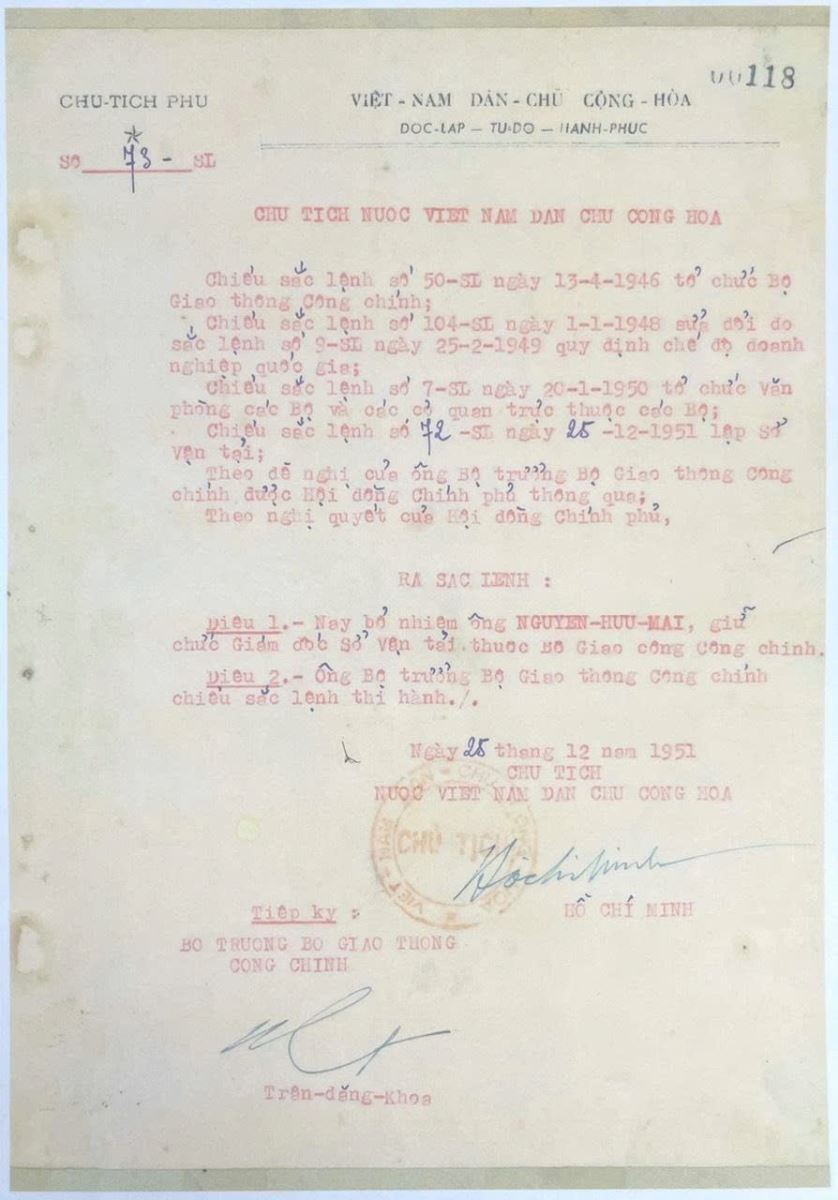 00118
CHU-TICH PHU
VIỆT - NAM DÂN - CHỦ CỘNG - HÒA
DOC-LAP — TU-DO — HANH-PHUC
Số 73 - SL
CHU TICH NUOC VIET NAM DAN CHU CONG HOA
Chiếu sắc lệnh số 50-SL ngày 13-4-1946 tổ chức Bộ
Giao thông Công chính;
Chiếu sắc lệnh số 104-SL ngày 1-1-1948 sửa đổi do
sắc lệnh số 9-SL ngày 25-2-1949 quy định chế độ doanh
nghiệp quốc gia;
Chiếu sắc lệnh số 7-SL ngày 20-1-1950 tổ chức Văn
phòng các Bộ và các cơ quan trực thuộc các Bộ;
Chiếu sắc lệnh số 72 -SL ngày 25 -12-1951 lập Sở
Vận tải;
Theo đề nghị của ông Bộ trưởng Bộ Giao thông Công
chính được Hội đồng Chính phủ thông qua;
Theo nghị quyết của Hội đồng Chính phủ,
RA SAC LENH :
Điều 1.- Nay bổ nhiệm ông NGUYEN-HUU-MAI, giữ
chức Giám đốc Sở Vận tải thuộc Bộ Giao công Công chinh.
Điều 2.- Ông Bộ trưởng Bộ Giao thông Công chính
chiếu sắc lệnh thi hành./.
Ngày 25 thang 12 nam 1951
CHU TICH
NUOC VIET NAM DAN CHU CONG HOA
CHỦ TỊCH
Hồ Chí Minh
Tiêp ky :
HỒ CHÍ MINH
BO TRUONG BO GIAO THONG
CONG CHINH
Trần-đăng-Khoa